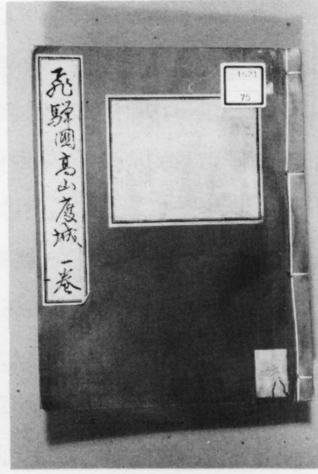 飛騨國高山廃城 一巻
1621
75
八